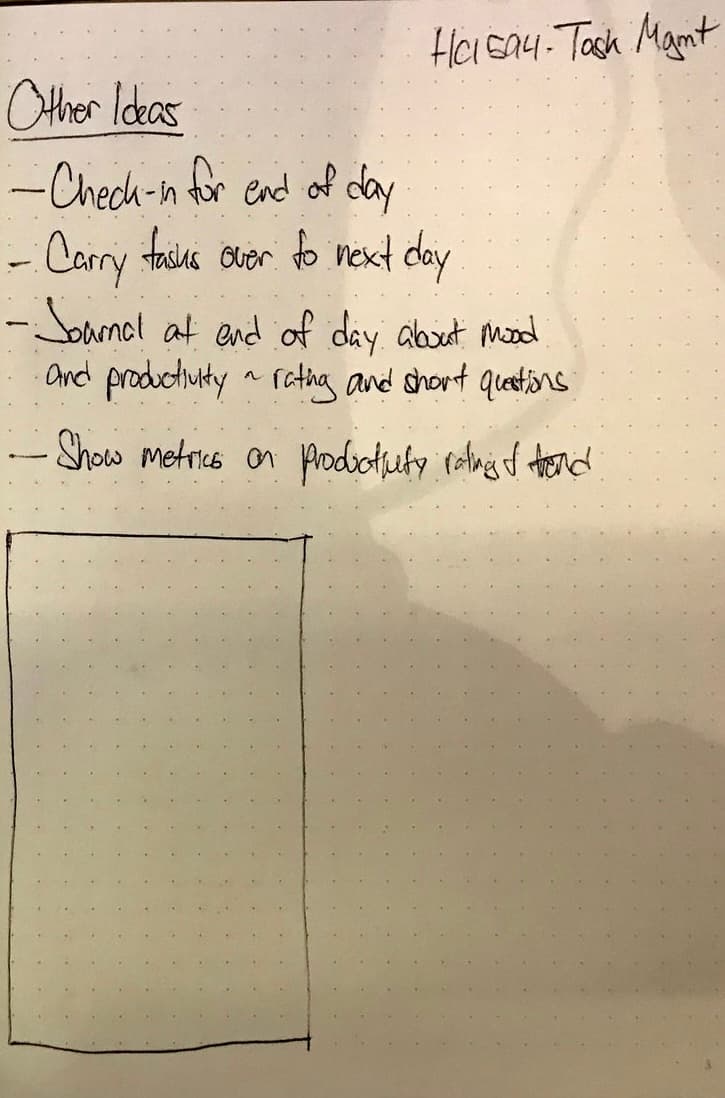 HCI 594 - Task Mgmt
Other Ideas
- Check-in for end of day
- Carry tasks over to next day
- Journal at end of day about mood
and productivity ~ rating and short questions
- Show metrics on productivity ratings & trend